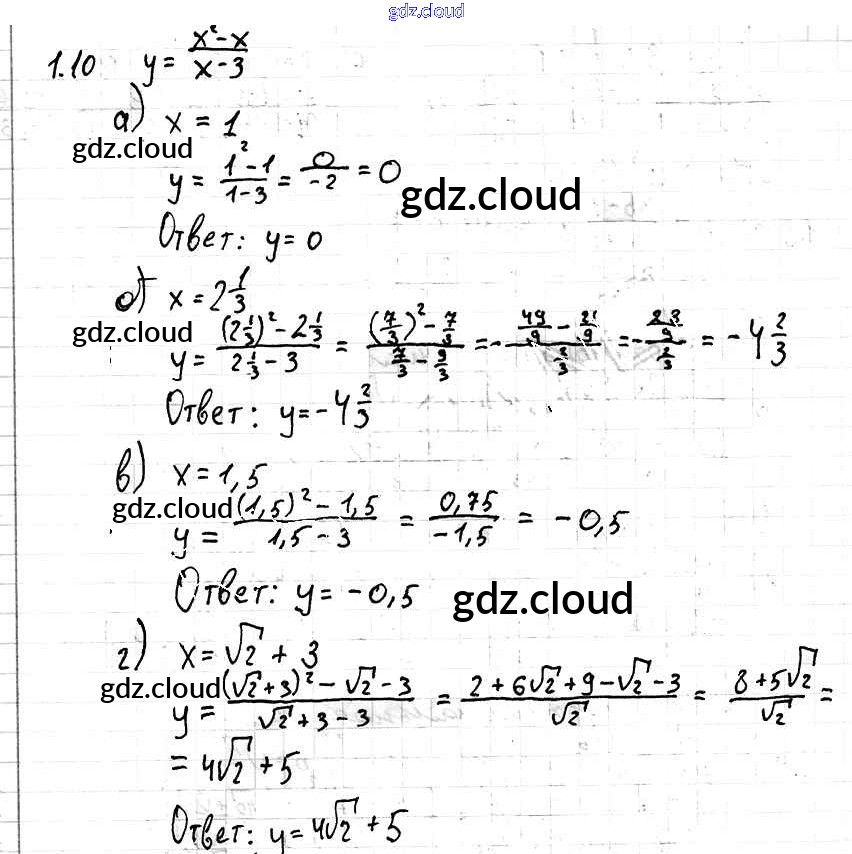 gdz.cloud
1.10 y = (x² - x)/(x - 3)
а) x = 1
gdz.cloud
y = (1² - 1)/(1 - 3) = 0/(-2) = 0
gdz.cloud
Ответ: y = 0
б) x = 2 1/3
gdz.cloud
y = ((2 1/3)² - 2 1/3)/(2 1/3 - 3) = ((7/3)² - 7/3)/(7/3 - 9/3) = -(49/9 - 21/9)/(2/3) = -(28/9)/(2/3) = -4 2/3
Ответ: y = -4 2/3
в) x = 1,5
gdz.cloud
y = ((1,5)² - 1,5)/(1,5 - 3) = 0,75/(-1,5) = -0,5
Ответ: y = -0,5
gdz.cloud
г) x = √2 + 3
gdz.cloud
y = ((√2 + 3)² - √2 - 3)/(√2 + 3 - 3) = (2 + 6√2 + 9 - √2 - 3)/√2 = (8 + 5√2)/√2 =
= 4√2 + 5
Ответ: y = 4√2 + 5